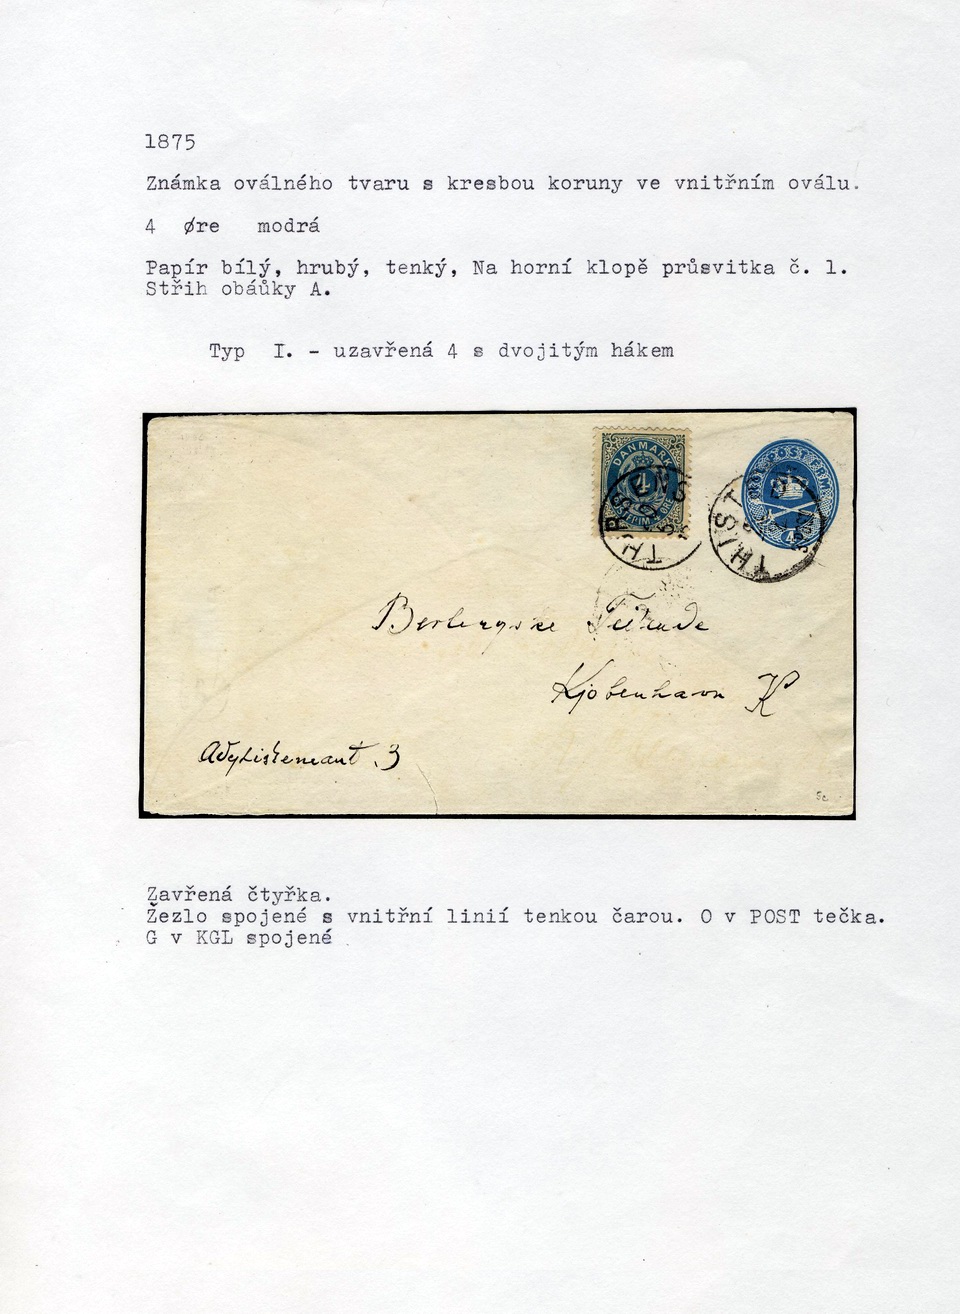 1875
Známka oválného tvaru s kresbou koruny ve vnitřním oválu.
4 Øre modrá
Papír bílý, hrubý, tenký, Na horní klopě průsvitka č. 1.
Střih obáůky A.
Typ I. - uzavřená 4 s dvojitým hákem
DANMARK
4
THISTED
Kjøbenhavn K
3
5c
Zavřená čtyřka.
Žezlo spojené s vnitřní linií tenkou čarou. O v POST tečka.
G v KGL spojené